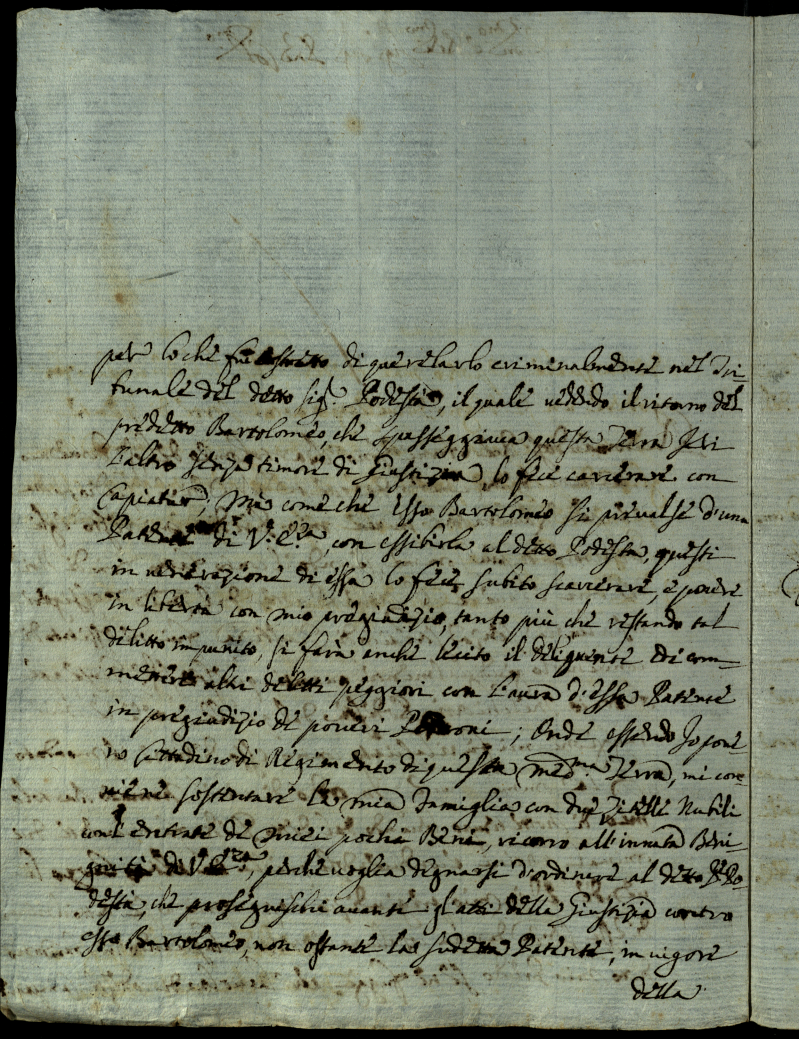 per lo che fui astretto di querelarlo criminalmente nel Tri-
bunale del detto Sig.r Podestà, il quale vedendo il ritorno del
predetto Bartolomeo, che spasseggiava questa Terra Jeri
l'altro senza timore di Giustizia, lo fece carcerare con
Capiatur, Ma come che esso Bartolomeo si prevalse d'una
Patente di V.E.za, con essibirla al detto Podestà, questi
in venerazione di essa lo fece subito scarcerare, e porre
in libertà con mio pregiudizio, tanto più che restando tal
delitto impunito, si farà anche lecito il delinquente di com-
mettere altri delitti peggiori con l'aura d'essa Patente
in pregiudizio de poveri Padroni; Onde essendo Io pove-
ro Cittadino di Regimento di questa med.ma Terra, mi con-
viene sostentare la mia Famiglia con due Zitelle Nubili
con l'entrate de miei pochi Beni, ricorro all'innata Beni-
gnità di V.E.za, perche voglia degnarsi d'ordinare al detto S.r Po-
destà, che proseguischi avanti gl'atti della Giustizia contro
esso Bartolomeo, non ostante la sudetta Patente, in vigore
della